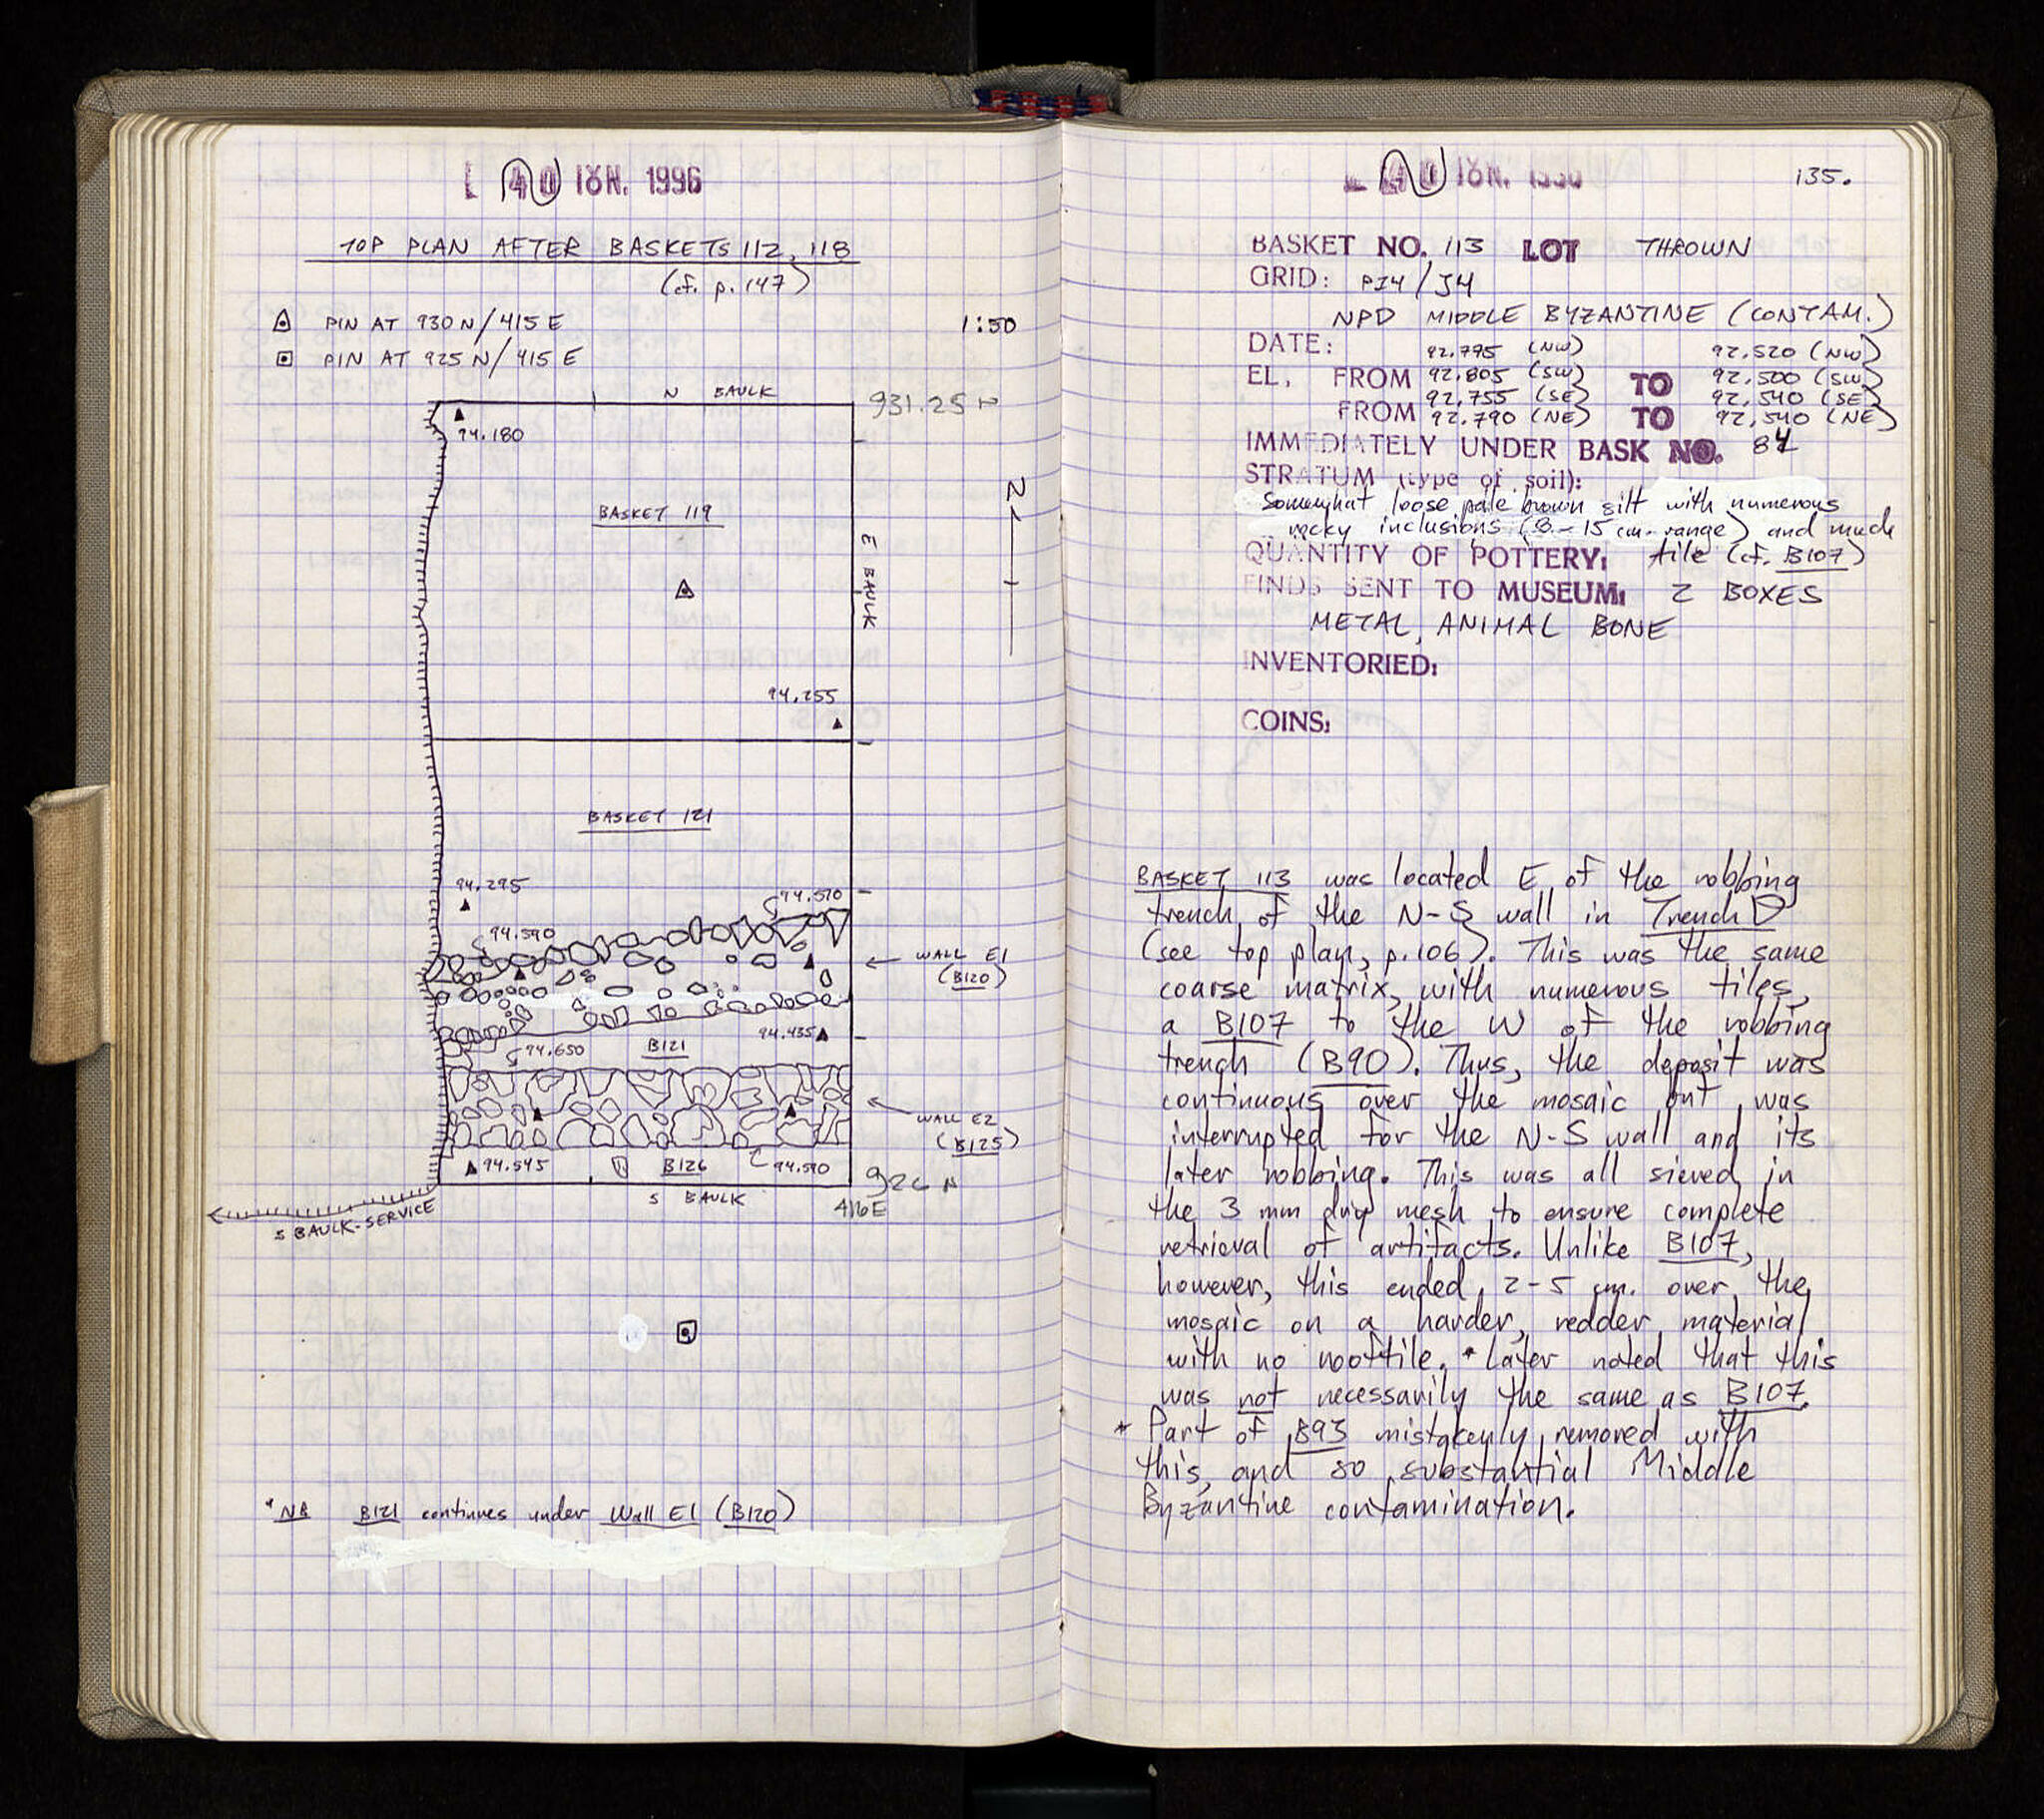 1996
TOP PLAN AFTER BASKETS 112, 118
(cf. p. 147)
PIN AT 930 N/415 E
1:50
PIN AT 925 N/415 E
N BAULK
931.25 N
94.180
BASKET 119
E BAULK
94.255
BASKET 121
94.295
94.570
94.590
WALL E1
(B120)
94.435
94.650
B121
WALL E2
(B125)
94.545
B126
94.590
S BAULK
926 N
416E
S BAULK-SERVICE
*NB B121 continues under Wall E1 (B120)
135.
BASKET NO. 113 LOT THROWN
GRID: PI4/J4
NPD MIDDLE BYZANTINE (CONTAM.)
DATE:
92.795 (NW) 92.520 (NW)
EL. FROM 92.805 (SW) TO 92.500 (SW)
92.755 (SE) 92.540 (SE)
FROM 92.790 (NE) TO 92.540 (NE)
IMMEDIATELY UNDER BASK NO. 84
STRATUM (type of soil):
Somewhat loose pale brown silt with numerous
rocky inclusions (8-15 cm. range) and much
QUANTITY OF POTTERY: tile (cf. B107)
FINDS SENT TO MUSEUM: 2 BOXES
METAL, ANIMAL BONE
INVENTORIED:
COINS:
BASKET 113 was located E of the robbing
trench of the N-S wall in Trench D
(see top plan, p. 106). This was the same
coarse matrix, with numerous tiles,
a B107 to the W of the robbing
trench (B90). Thus, the deposit was
continuous over the mosaic but was
interrupted for the N-S wall and its
later robbing. This was all sieved in
the 3 mm dry mesh to ensure complete
retrieval of artifacts. Unlike B107,
however, this ended 2-5 cm. over the
mosaic on a harder, redder material
with no rooftile. * Later noted that this
was not necessarily the same as B107.
* Part of B93 mistakenly removed with
this, and so substantial Middle
Byzantine contamination.